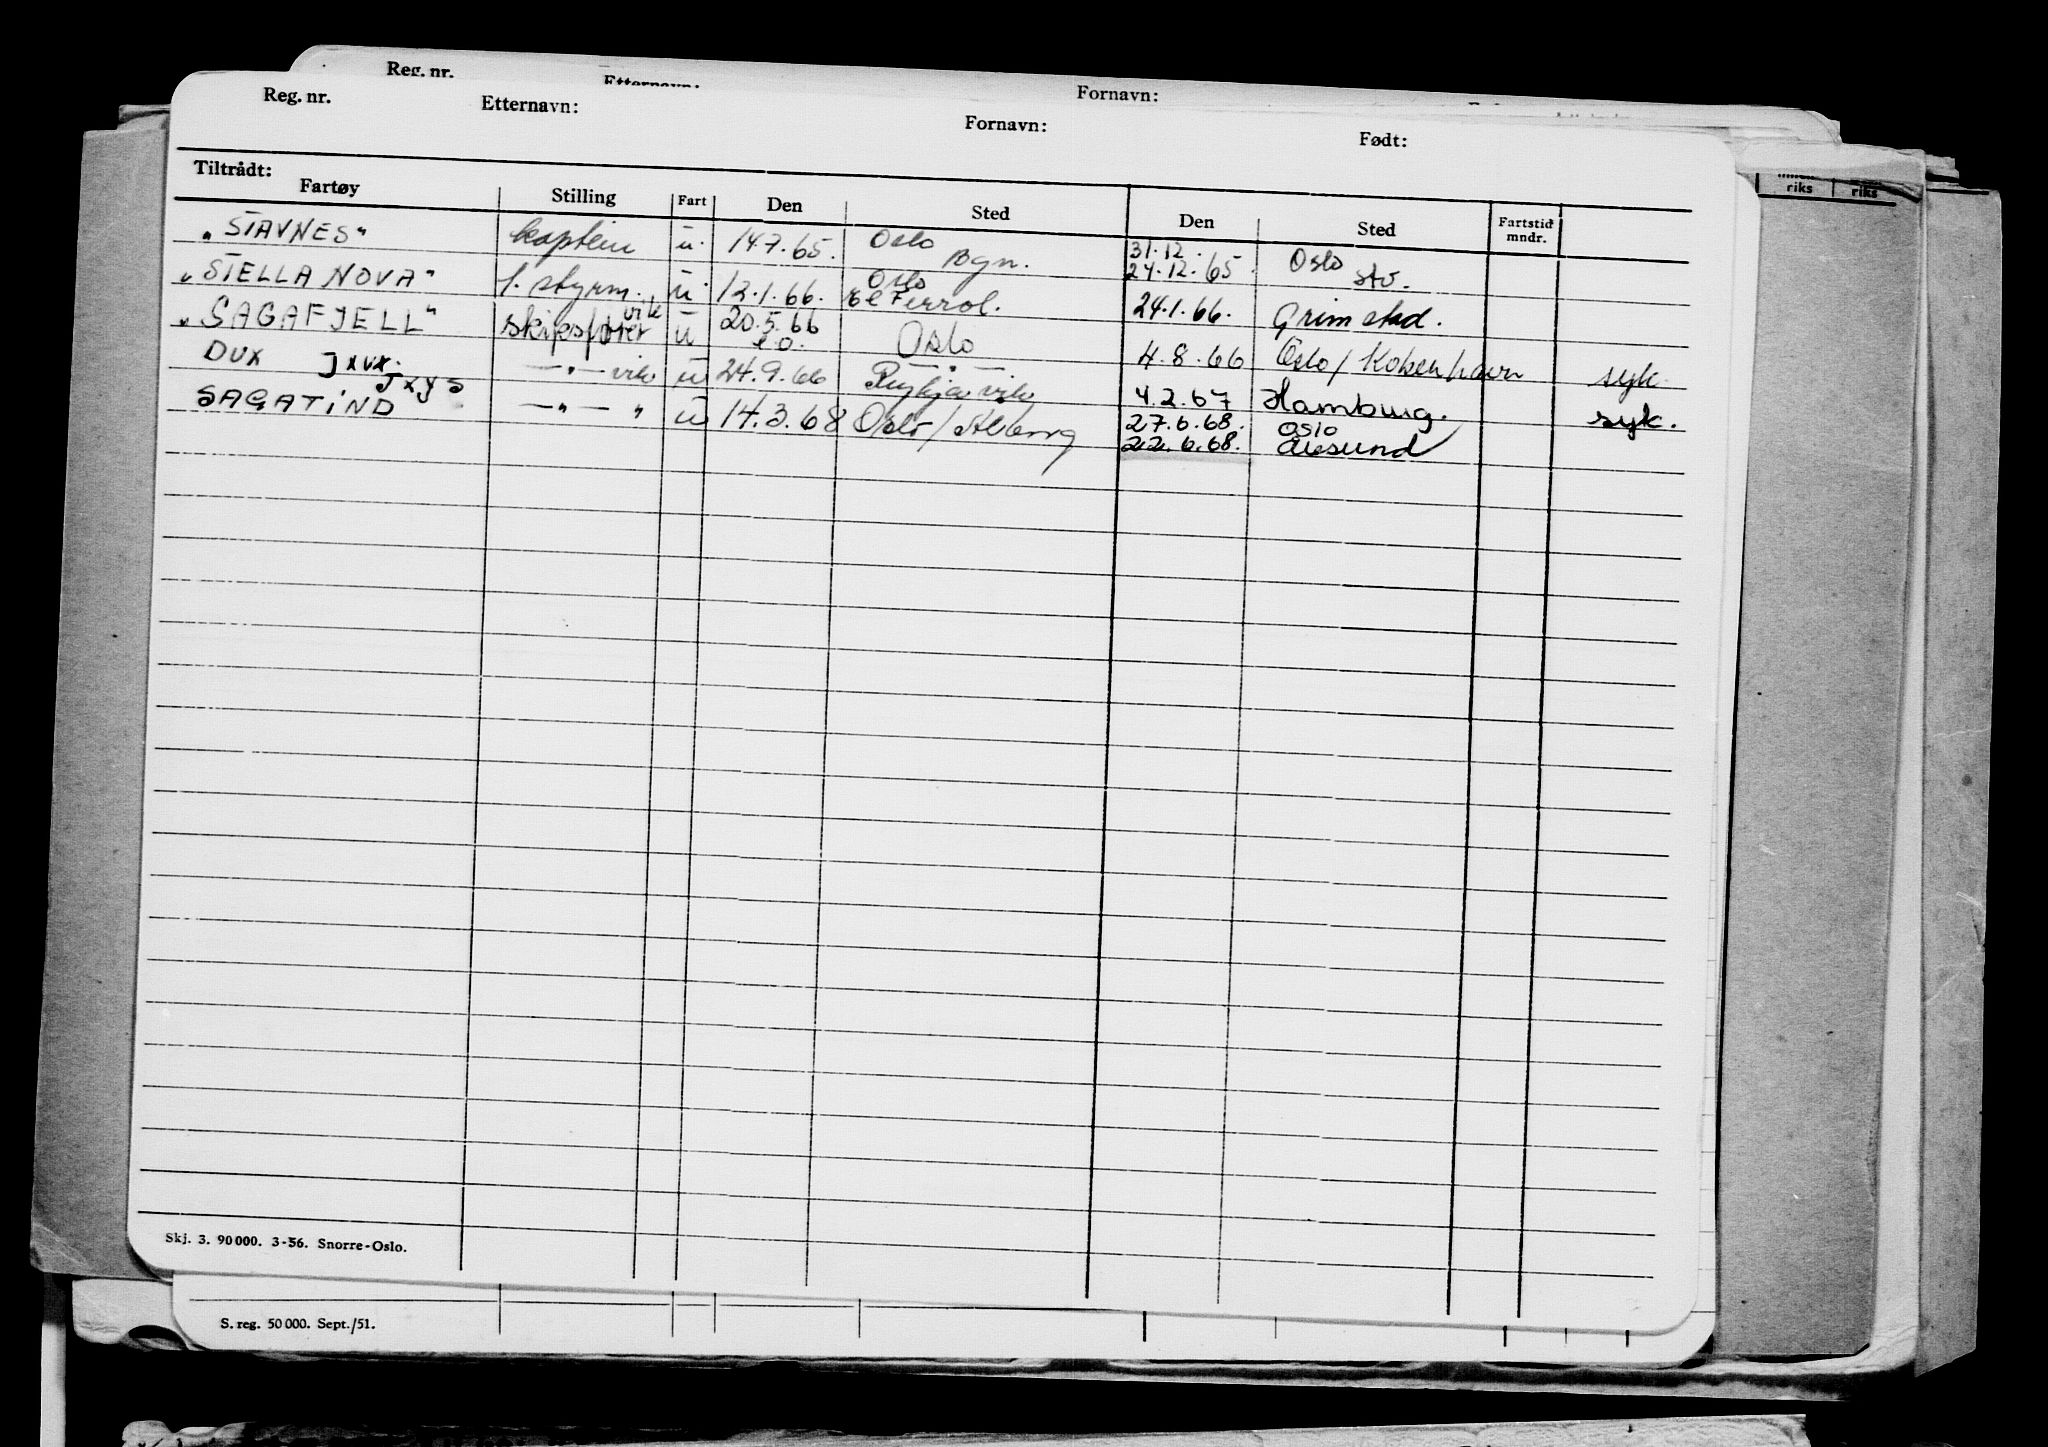 Reg. nr. Fornavn:
Reg. nr. Etternavn: Fornavn: Født:
riks riks
Tiltrådt:
Fartøy Stilling Fart Den Sted Den Sted Fartstid mndr.
"STAVNES" kaptein u. 14.7.65. Oslo Bgn. 31.12. 24.12.65. Oslo Stv.
"STELLA NOVA" 1. styrm. u 12.1.66. Oslo El Ferrol. 24.1.66. Grimstad.
"SAGAFJELL" skipsfører vik u 20.5.66 Oslo 4.8.66 Oslo/Kobenhavn syk.
DUX JXVX. JXYS —"— vik u 24.9.66 Reykjavik 4.2.67 Hamburg. syk.
SAGATIND —"— " u 14.3.68 Oslo/Ålborg 27.6.68. Oslo
22.6.68. Ålesund
Skj. 3. 90000. 3-56. Snorre-Oslo.
S. reg. 50000. Sept./51.